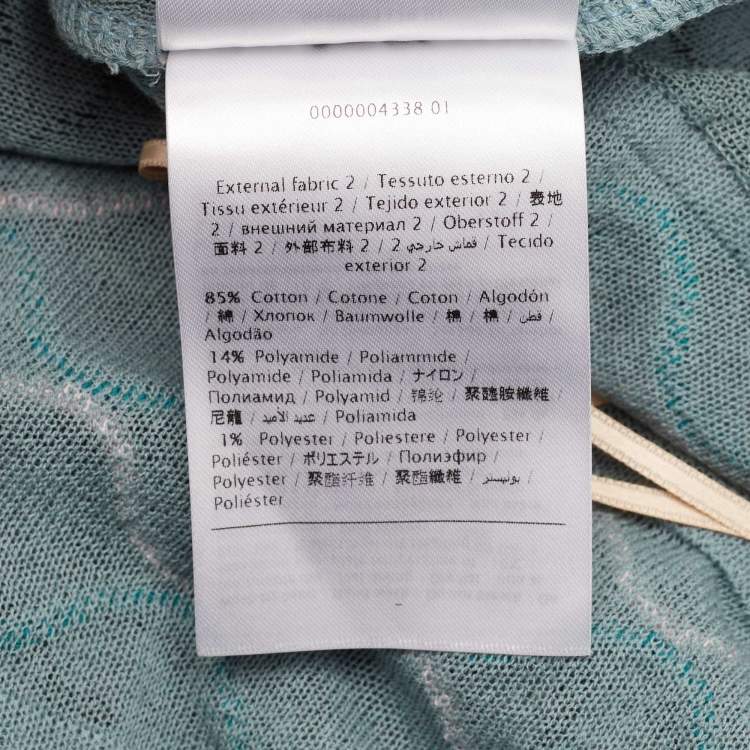 0000004338 01
External fabric 2 / Tessuto esterno 2 /
Tissu extérieur 2 / Tejido exterior 2 / 表地
2 / внешний материал 2 / Oberstoff 2 /
面料 2 / 外部布料 2 / قماش خارجي 2 / Tecido
exterior 2
85% Cotton / Cotone / Coton / Algodón
/ 綿 / Хлопок / Baumwolle / 棉 / 棉 / قطن /
Algodão
14% Polyamide / Poliammide /
Polyamide / Poliamida / ナイロン /
Полиамид / Polyamid / 锦纶 / 聚醯胺纖維 /
尼龍 / عديد الأميد / Poliamida
1% Polyester / Poliestere / Polyester /
Poliéster / ポリエステル / Полиэфир /
Polyester / 聚酯纤维 / 聚酯纖維 / بوليستر /
Poliéster